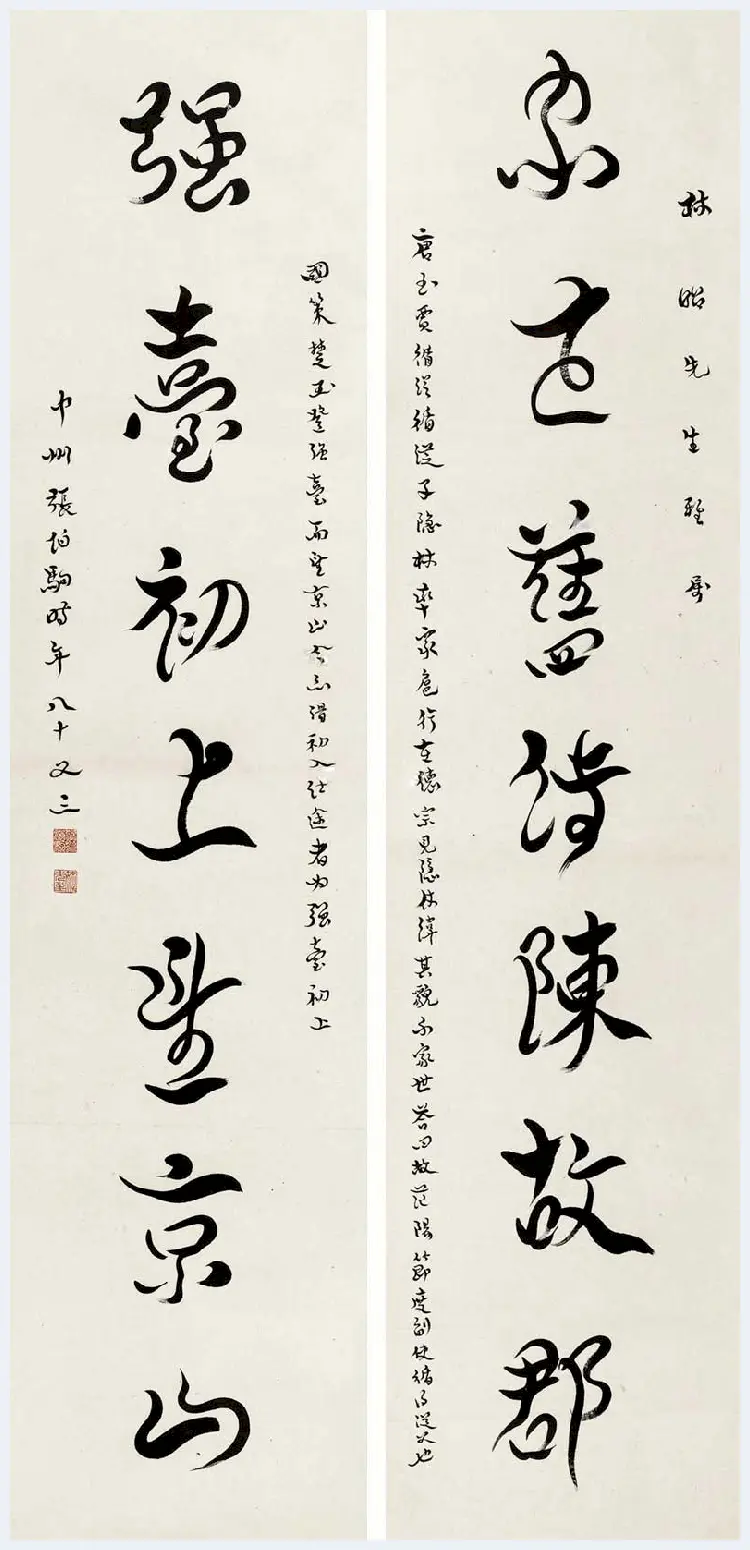 林昭先生雅屬
家世舊傳陳故郡
唐書賈循傳循從子隱林率家扈行在德宗見隱林偉其貌問家世答曰故范陽節度副使循臣從父也
國策楚王登强臺而望京山今亦謂初入仕途者為强臺初上
强臺初上望京山
中州張伯駒時年八十又三